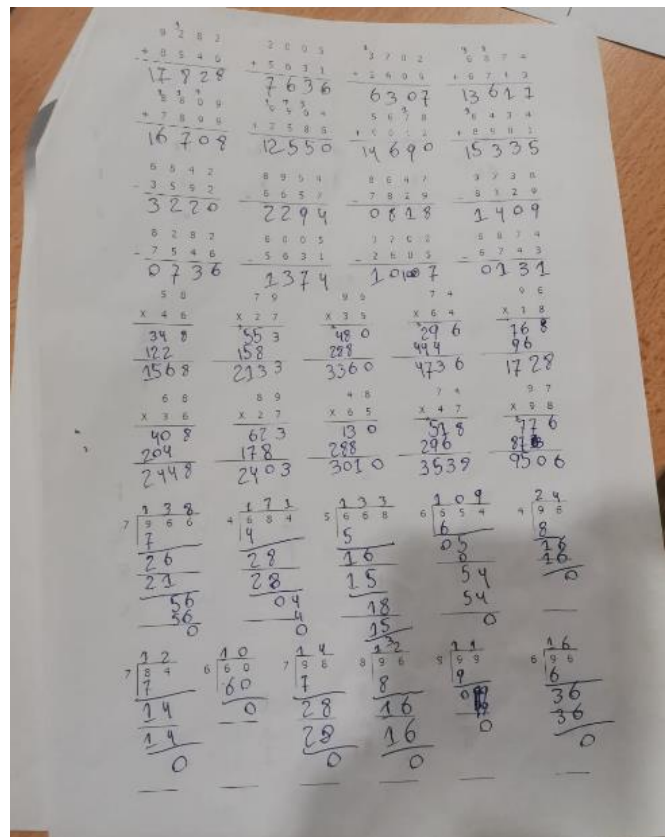 9 2 8 2
+ 8 5 4 6
17 8 2 8
2 0 0 5
+ 5 6 3 1
7 6 3 6
3 7 0 2
+ 2 6 0 5
6 3 0 7
6 8 7 4
+ 6 7 4 3
13 6 1 7
8 8 0 9
+ 7 8 9 9
16 7 0 8
+ 7 5 8 6
12 5 5 0
5 6 7 8
14 6 9 0
6 4 3 4
15 3 3 5
6 8 4 2
- 3 5 5 2
3 2 2 0
8 9 5 4
- 6 6 5 7
2 2 9 4
8 6 4 7
- 7 8 2 9
0 8 1 8
- 8 3 2 9
1 4 0 9
8 2 8 2
- 7 5 4 6
0 7 3 6
- 5 6 3 1
1 3 7 4
- 2 6 0 5
6 8 7 4
- 6 7 4 3
0 1 3 1
5 8
x 4 6
34 8
122
1568
7 9
x 2 7
55 3
158
2133
x 3 5
48 0
288
3360
7 4
x 6 4
29 6
444
4736
9 6
x 1 8
76 8
96
1728
6 8
x 3 6
40 8
204
2448
8 9
x 2 7
62 3
178
2403
4 8
x 6 5
13 0
288
3010
7 4
x 4 7
51 8
296
3539
9 7
x 9 8
77 6
9506
1 3 8
7 9 6 6
7
26
21
56
56
0
1 7 1
4 6 8 4
4
28
28
04
4
0
1 3 3
5 6 6 8
5
16
15
18
15
3
1 0 9
6 6 5 4
6
05
0
54
54
0
2 4
4 9 6
8
16
16
0
1 2
7 8 4
7
14
14
0
1 0
6 6 0
60
0
1 4
7 9 8
7
28
28
0
1 2
8 9 6
8
16
16
0
1 1
9 9 9
9
0
1 6
6 9 6
6
36
36
0